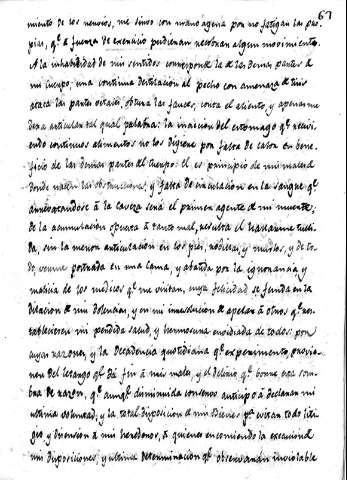 67
miento de los nervios, me sirvo con mano agena por no fatigar las pro
pias, q.e a fuerza de exercicio perdieran algun movimiento.
A la inhabilidad de mis sentidos corresponde la de las demas partes de
mi cuerpo; una continua destilacion al pecho con amenaza de tisis
ataca las partes, obtura las fauces, corta el aliento, y apenas me
dexa articular tal qual palabra: la inaccion del estomago q.e recivi
endo continuos alimentos no los digiere por falta de calor en bene
ficio de las demas partes del cuerpo: el es principio de mi mal
donde nacen las obstrucciones, y falta de circulacion en la sangre q.e
á la caveza será el primer agente de mi muerte;
de la acumulacion á tanto mal, resulta el hallarme tulli
da, sin la menor articulacion en los pies, rodillas, y muslos, y de to
do, verme postrada en una cama, y abatida por la ignorancia y
malicia de los medicos q.e me visitan, cuya felicidad se funda en la
dilacion de mis dolencias, y en mi de apelar á otros q.e res
tableciesen mi perdida salud, y hermosura envidiada de todos: por
cuyas razones, y la decadencia quotidiana q.e experimento, provie
nen del letargo q.e da fin á mis males, y el delirio q.e borra esa som
bra de razon, q.e aunq.e diminuida conservo anticipo á declarar mi
ultima voluntad; y la total disposicion de mis vienes q.e eviten todo liti
gio y disension á mis herederos, á quienes encomiendo la execucion de
mis disposiciones, y ultima determinacion q.e observaran inviolable